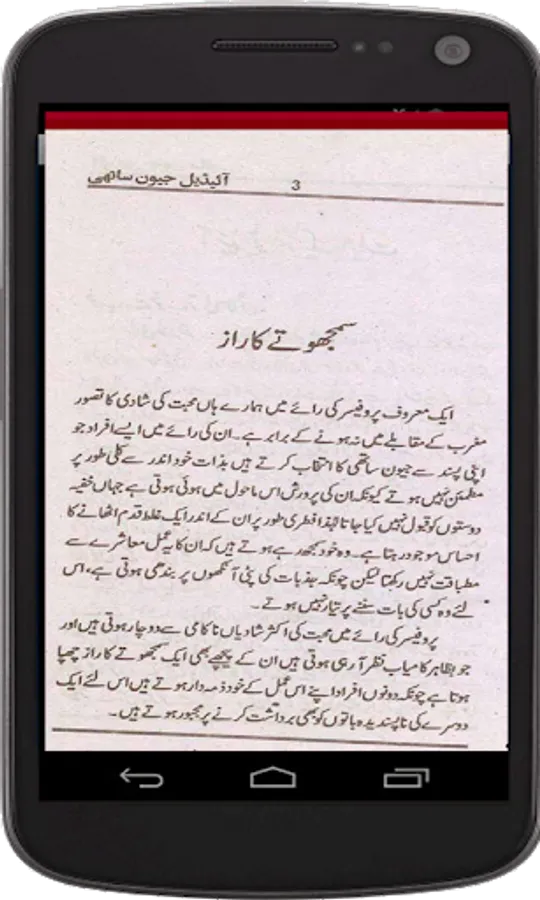 آئیڈیل جیون ساتھی 3
سمجھوتے کا راز
ایک معروف پروفیسر کی رائے میں ہمارے ہاں محبت کی شادی کا تصور
مغرب کے مقابلے میں نہ ہونے کے برابر ہے۔ ان کی رائے میں ایسے افراد جو
اپنی پسند سے جیون ساتھی کا انتخاب کرتے ہیں بذات خود اندر سے کلی طور پر
مطمئن نہیں ہوتے کیونکہ ان کی پرورش اس ماحول میں ہوئی ہوتی ہے جہاں خفیہ
دوستوں کو قبول نہیں کیا جاتا لہٰذا فطری طور پر ان کے اندر ایک غلط قدم اٹھانے کا
احساس موجود رہتا ہے۔ وہ خود سمجھ رہے ہوتے ہیں کہ ان کا یہ عمل معاشرے سے
مطباقت نہیں رکھتا لیکن چونکہ جذبات کی پٹی آنکھوں پر بندھی ہوتی ہے، اس
لئے وہ کسی کی بات سننے پر تیار نہیں ہوتے۔
پروفیسر کی رائے میں محبت کی اکثر شادیاں ناکامی سے دوچار ہوتی ہیں اور
جو بظاہر کامیاب نظر آ رہی ہوتی ہیں ان کے پیچھے بھی ایک سمجھوتے کا راز چھپا
ہوتا ہے چونکہ دونوں افراد اپنے اس عمل کے خود ذمہ دار ہوتے ہیں اس لئے ایک
دوسرے کی ناپسندیدہ باتوں کو بھی برداشت کرنے پر مجبور ہوتے ہیں۔